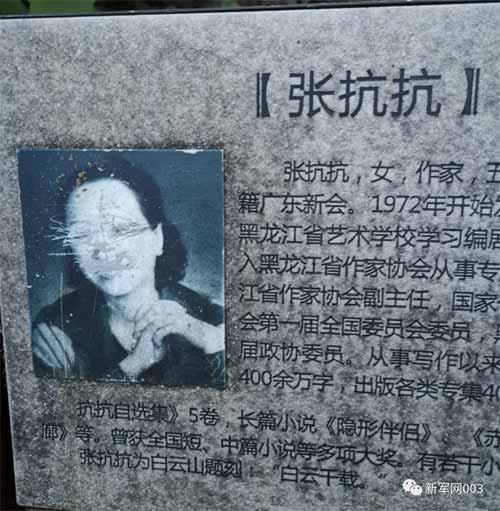 【张抗抗】
张抗抗，女，作家，
籍广东新会。1972年开始
黑龙江省艺术学校学习编
入黑龙江省作家协会从事专
江省作家协会副主任，国家
会第一届全国委员会委员，
届政协委员。从事写作以来
400余万字，出版各类专集4
抗抗自选集》5卷，长篇小说《隐形伴侣》 《赤
廊》等。曾获全国短、中篇小说等多项大奖。有若干小
张抗抗为白云山题刻："白云千载。"
新军网003